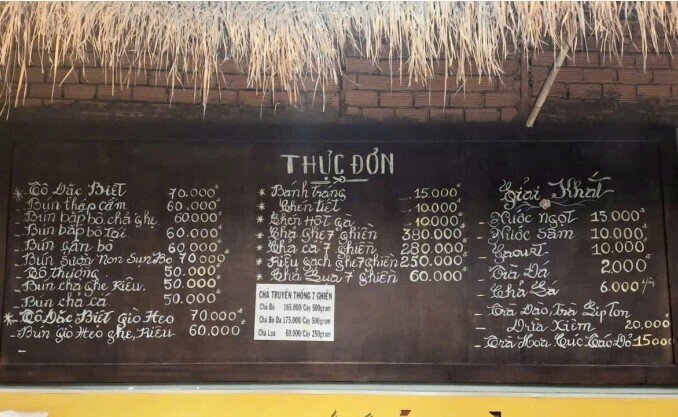 THỰC ĐƠN
* Tô Đặc Biệt 70.000đ
- Bún thập cẩm 60.000đ
- Bún bắp bò chả ghẹ 60000đ
- Bún bắp bò tái 60.000đ
- Bún gân bò 60.000đ
- Bún Sườn Non Sụn Bẹ 70.000đ
- Tô thường 50.000đ
- Bún chả ghẹ Riêu 50.000đ
- Bún chả cá 50.000đ
* Tô Đặc Biệt giò Heo 70.000đ
- Bún Giò Heo ghẹ, Riêu 60.000đ
* Bánh Tráng 15.000đ
* Chén tiết 10.000đ
* Chén HỘT Gà 10000đ
* Chả Ghẹ 7 ghiền 380.000đ
* Chả cá 7 ghiền 280.000đ
* Riêu gạch ghẹ 7 ghiền 250.000đ
* Chả Lụa 7 Ghiền 60.000đ
CHẢ TRUYỀN THỐNG 7 GHIỀN
Chả Bò 165.000/Cây 500gram
Chả Bò Da 175.000/Cây 500gram
Chả Lụa 60.000/Cây 250gram
Giải Khát
- Nước ngọt 15.000đ
- Nước Sâm 10.000đ
- 10.000đ
- Trà Đá 2.000đ
- 6.000đ/ly
- Trà Đào, Trà LipTon
- Dừa Xiêm 20.000đ
- Trà Hoa Cúc Táo Đỏ 15000đ